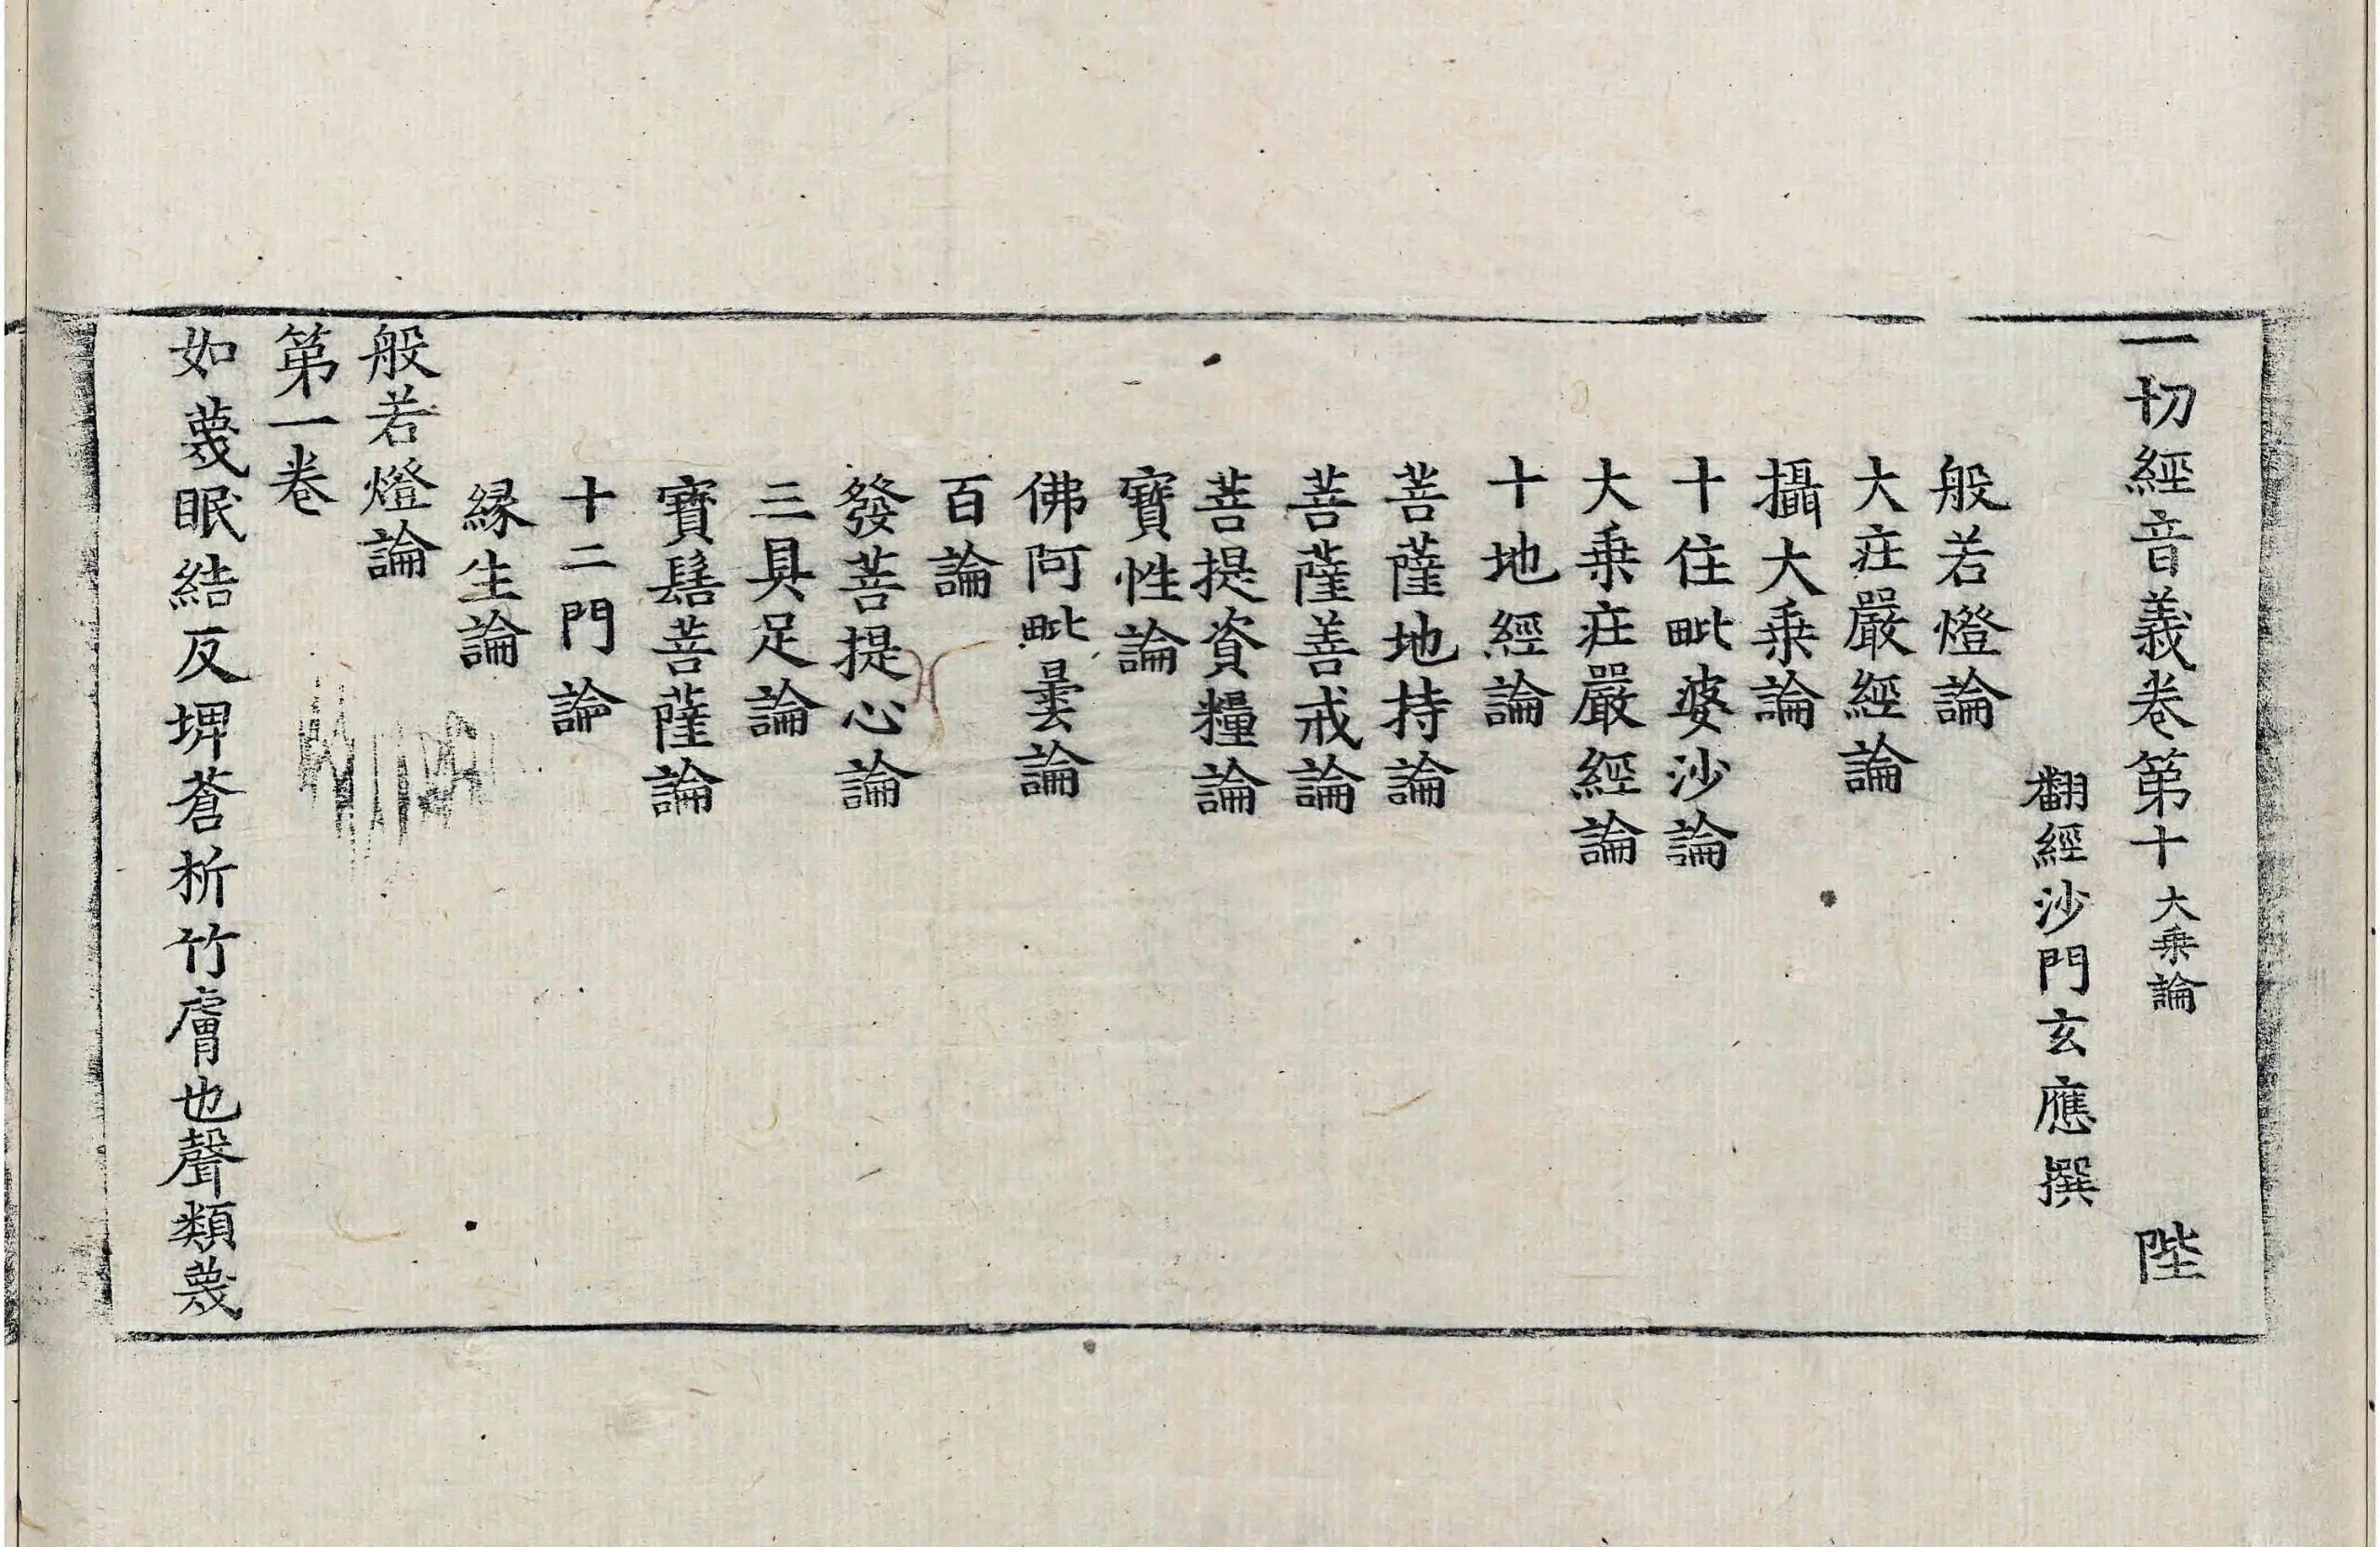 一切經音義卷第十 大乗論 陛
翻經沙門玄應撰
般若燈論
大莊嚴經論
攝大乗論
十住毗婆沙論
大乗莊嚴經論
十地經論
菩薩地持論
菩薩善戒論
菩提資糧論
寶性論
佛阿毗曇論
百論
發菩提心論
三具足論
寶髻菩薩論
十二門論
縁生論
般若燈論
第一卷
如薎眠結反埤蒼析竹膚也聲類薎